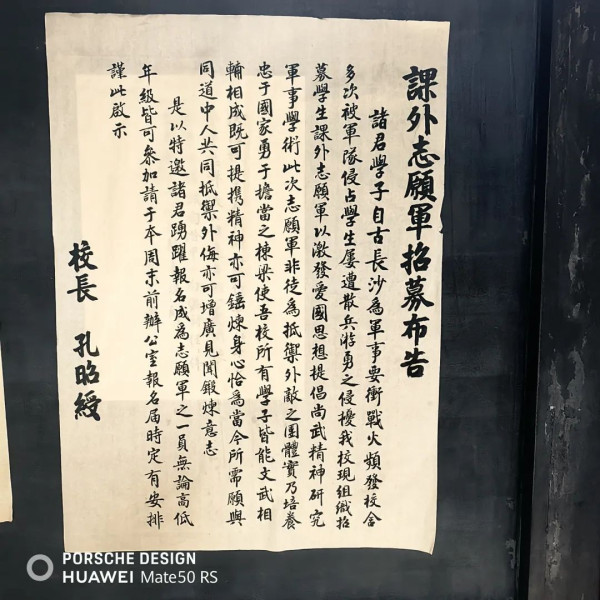 課外志願軍招募布告
諸君學子自古長沙為軍事要衝戰火頻發校舍
多次被軍隊侵占學生屢遭散兵游勇之侵擾我校現組織招
募學生課外志願軍以激發愛國思想提倡尚武精神研究
軍事學術此次志願軍非徒為抵禦外敵之團體實乃培養
忠于國家勇于擔當之棟梁使吾校所有學子皆能文武相
輔相成既可提携精神亦可鍛煉身心恰為當今所需願與
同道中人共同抵禦外侮亦可增廣見聞鍛煉意志
是以特邀諸君踴躍報名成為志願軍之一員無論高低
年級皆可參加請于本周末前辦公室報名屆時定有安排
謹此啟示
校長 孔昭綬
PORSCHE DESIGN
HUAWEI Mate50 RS